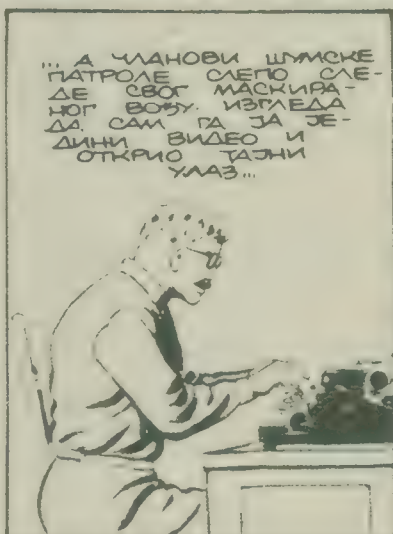 ... А ЧЛАНОВИ ШУМСКЕ
ПАТРОЛЕ СЛЕПО СЛЕ-
ДЕ СВОГ МАСКИРА-
НОГ ВОЂУ. ИЗГЛЕДА
ДА САМ ГА ЈА ЈЕ-
ДИНИ ВИДЕО И
ОТКРИО ТАЈНИ
УЛАЗ...